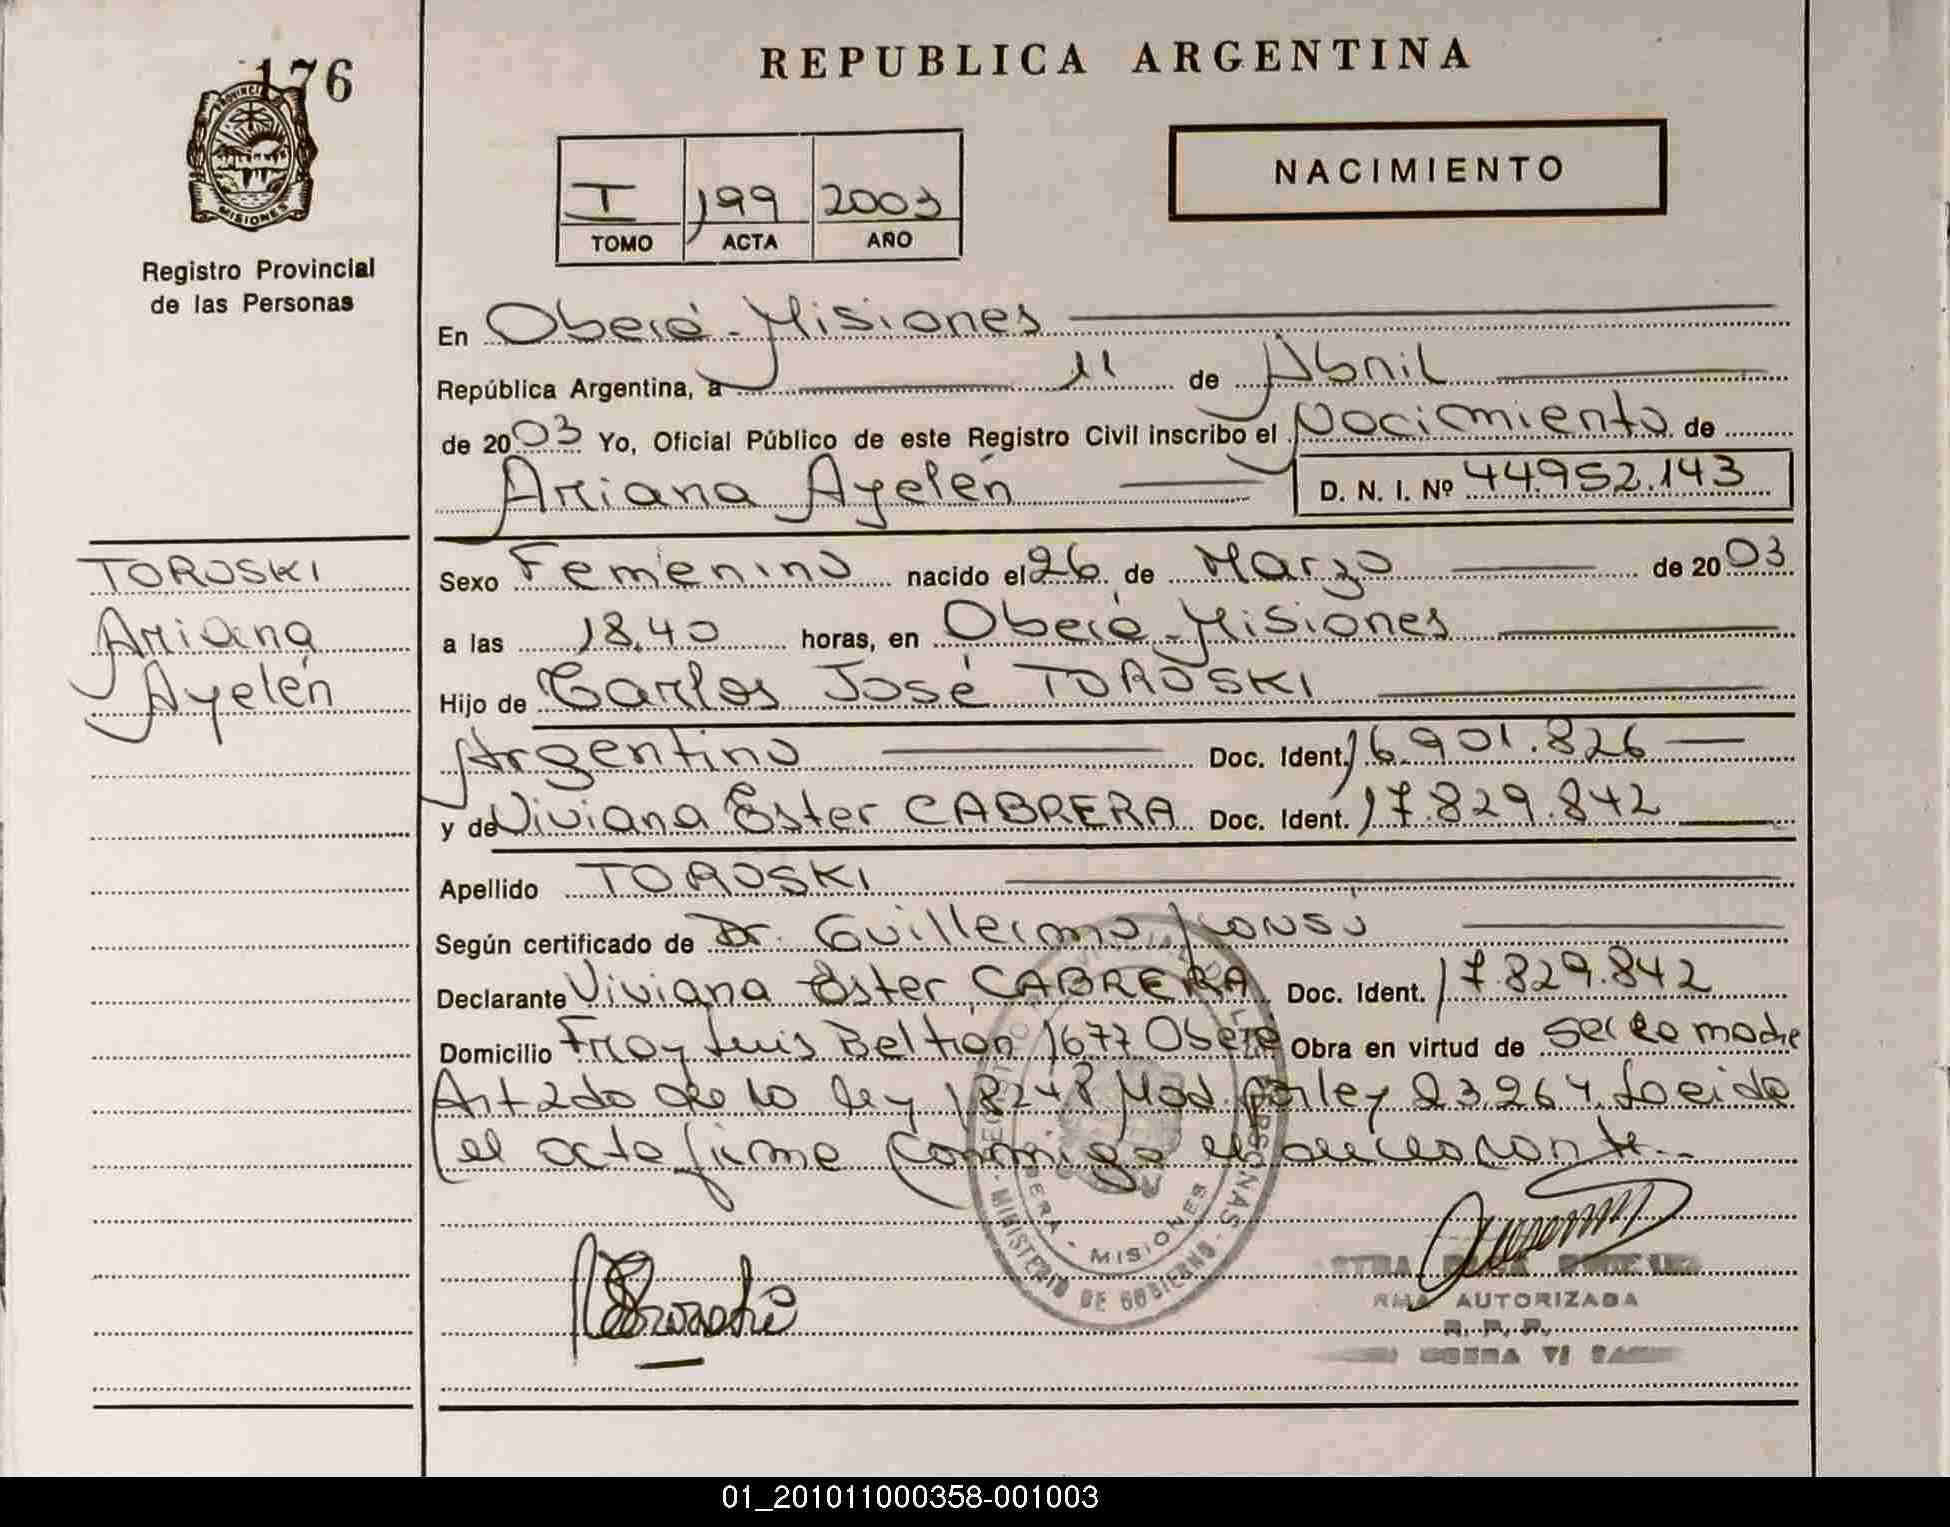 176
PROVINCIA DE
MISIONES
Registro Provincial
de las Personas
REPUBLICA ARGENTINA
NACIMIENTO
I 199 2003
TOMO ACTA AÑO
En Oberá - Misiones
República Argentina, a 11 de Abril
de 2003 Yo, Oficial Público de este Registro Civil inscribo el Nacimiento de
Ariana Ayelén D. N. I. Nº 44.952.143
TOROSKI
Ariana
Ayelén
Sexo Femenino nacido el 26 de Marzo de 2003
a las 18.40 horas, en Oberá - Misiones
Hijo de Carlos José TOROSKI
Argentino Doc. Ident. 16.901.826
y de Viviana Ester CABRERA Doc. Ident. 17.829.842
Apellido TOROSKI
Según certificado de Dr. Guillermo
Declarante Viviana Ester CABRERA Doc. Ident. 17.829.842
Domicilio Fray Luis Beltrán 1677 Oberá Obra en virtud de ser la madre
Art 2do de la ley 18248 Mod. por ley 23.264. Leida
el acta firma conmigo el
MISIONES
MINISTERIO DE GOBIERNO
AUTORIZADA
R. P. P.
01_201011000358-001003